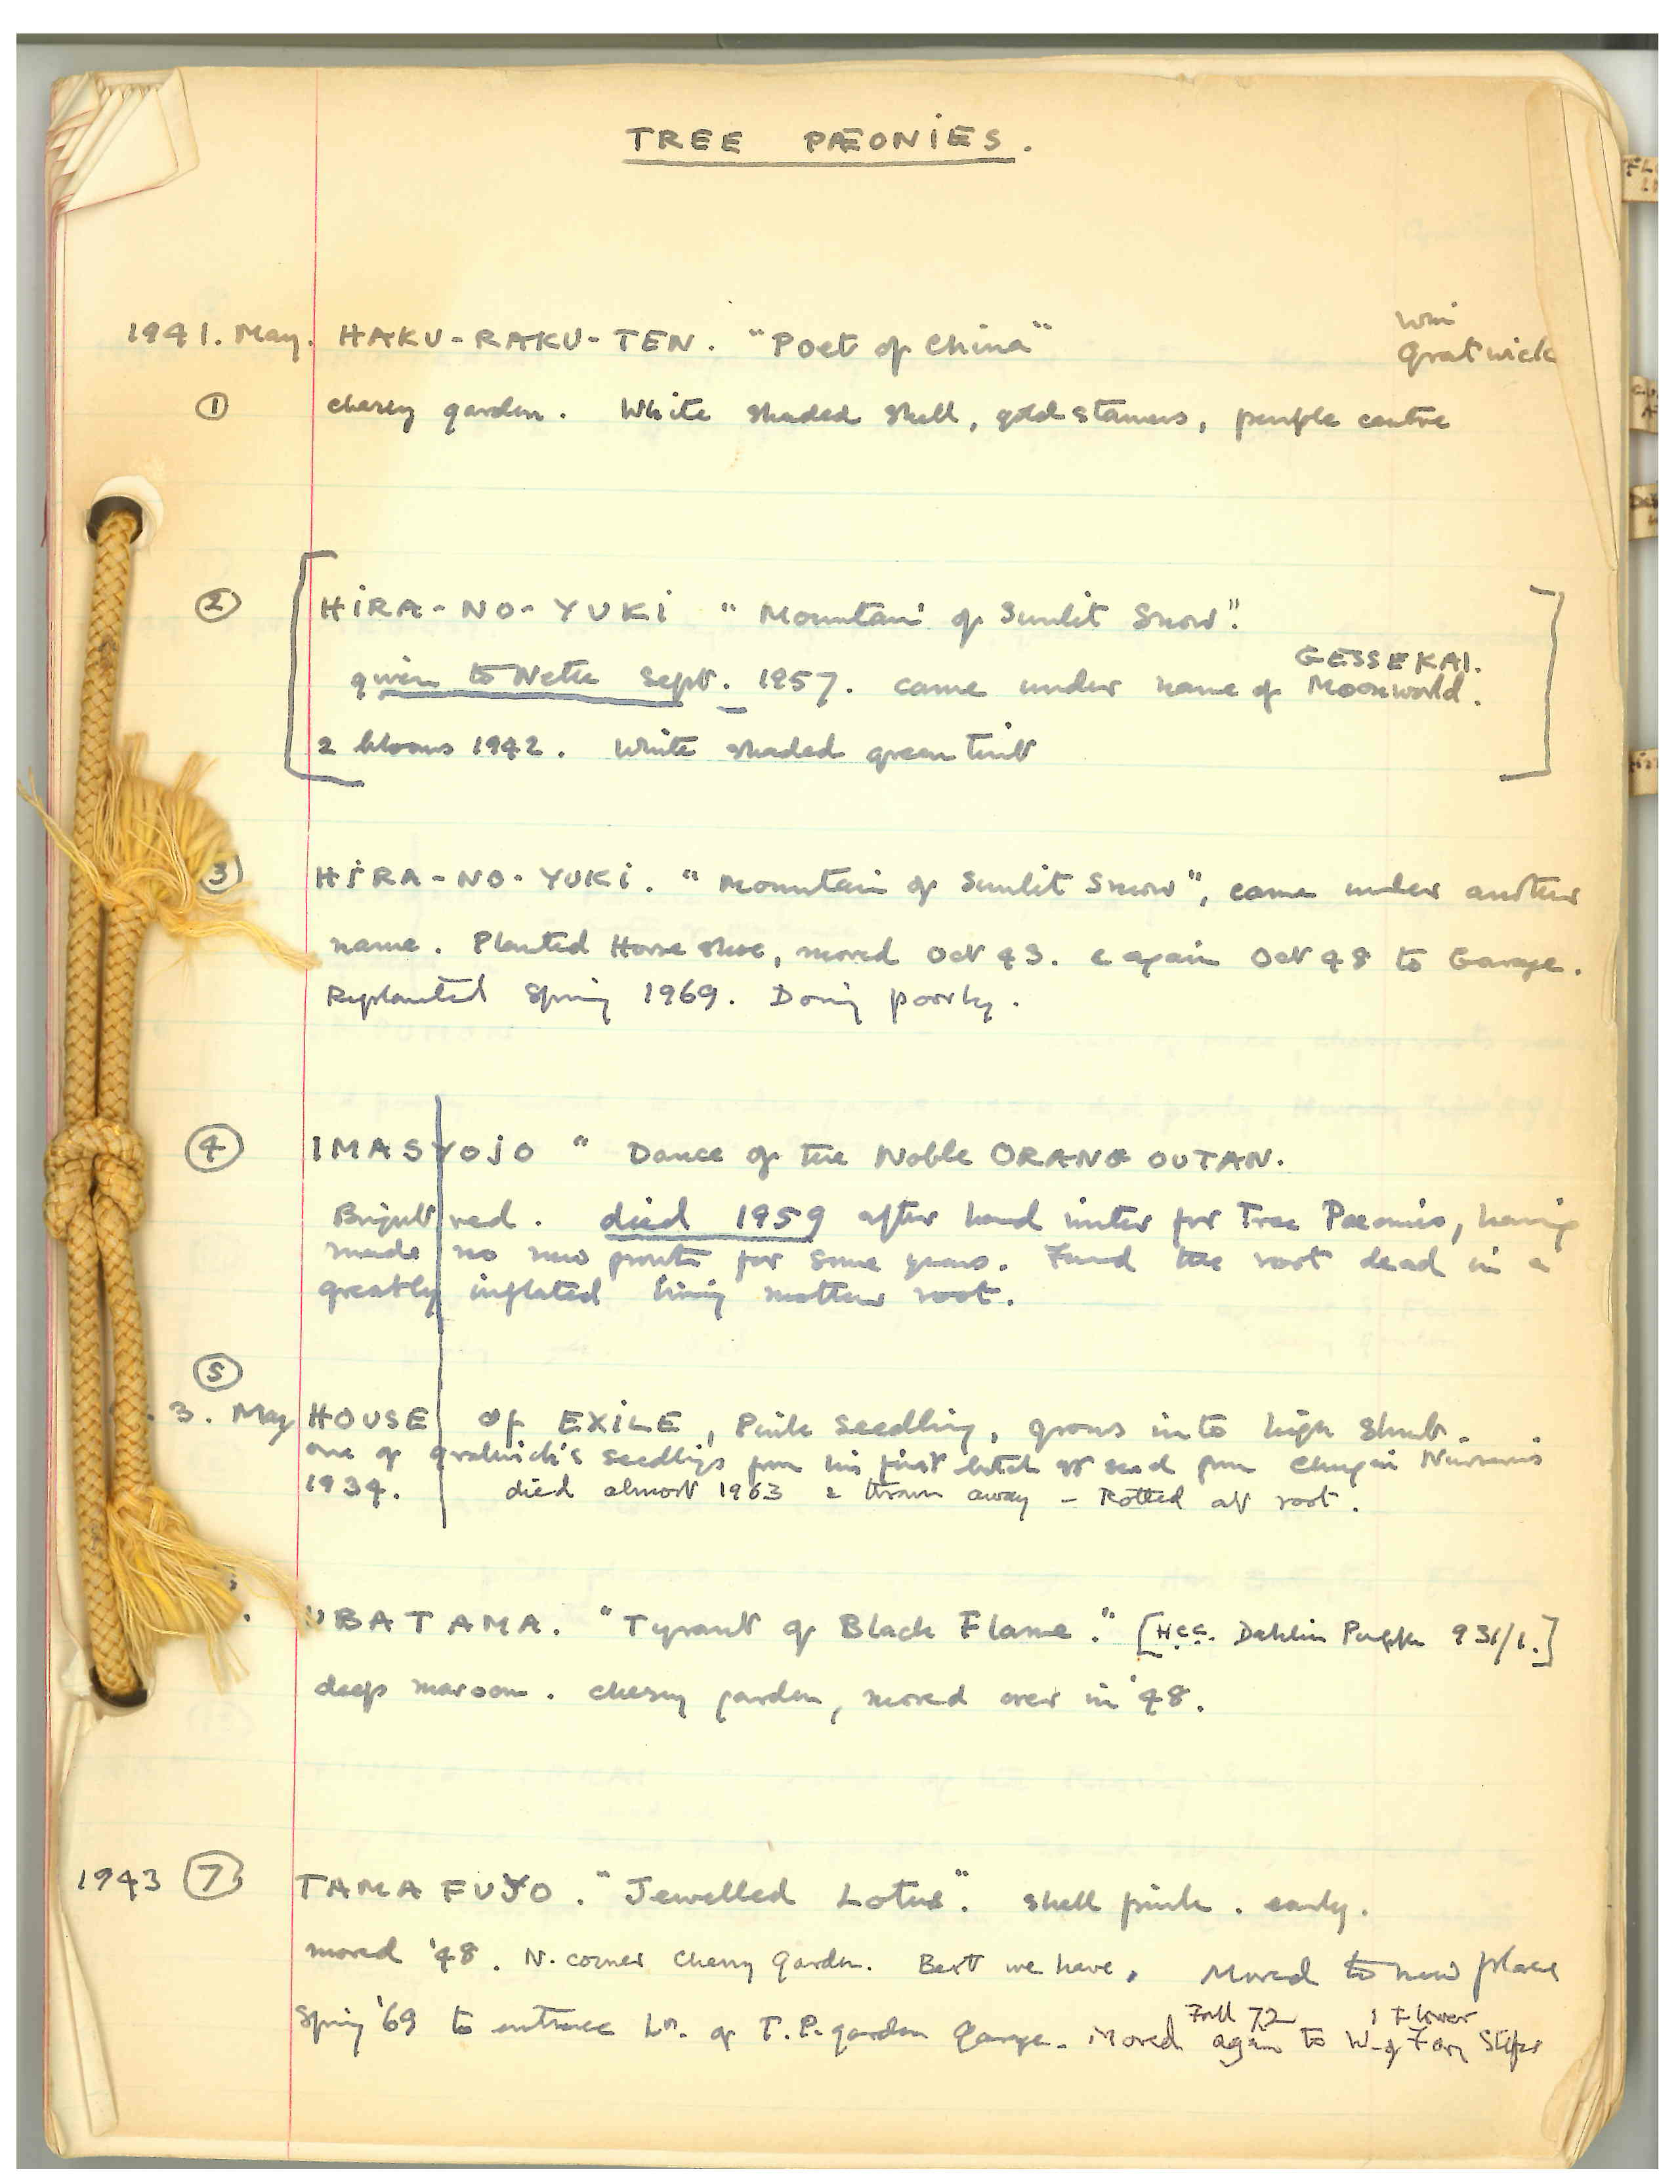 TREE PÆONIES.
Wm
1941. May. HAKU-RAKU-TEN. "Poet of China" Gratwick
① cherry garden. White shaded shell, gold stamens, purple centre
② HIRA-NO-YUKI "Mountain of Sunlit Snow".
GESSEKAI.
given to Sept. 1957. came under name of Moonworld.
2 blooms 1942. White shaded green tint
③ HIRA-NO-YUKI. "Mountain of Sunlit Snow", came under another
name. Planted Horse shoe, moved Oct 43. & again Oct 48 to Garage.
Replanted Spring 1969. Doing poorly.
④ IMASYOJO " Dance of the Noble ORANG OUTAN.
Bright red. died 1959 after hard winter for Tree Paeonies, having
made no new growth for some years. Found the root dead in a
greatly inflated living mother root.
⑤
3. May HOUSE of EXILE, Pink seedling, grows into high shrub.
one of Gratwick's seedlings from his first batch of seed from Chugai Nurseries
1934. died almost 1963 & thrown away - Rotted at root.
UBATAMA. "Tyrant of Black Flame." [H.C.C. Dahlia Purple 931/1.]
deep maroon. cherry garden, moved over in '48.
1943 ⑦ TAMA FUYO. "Jewelled Lotus". shell pink. early.
moved '48. N. corner Cherry Garden. Best we have. Moved to new place
Fall 72 1 Flower
Spring '69 to entrance of T.P. garden Garage. Moved again to W. of Steps
FL